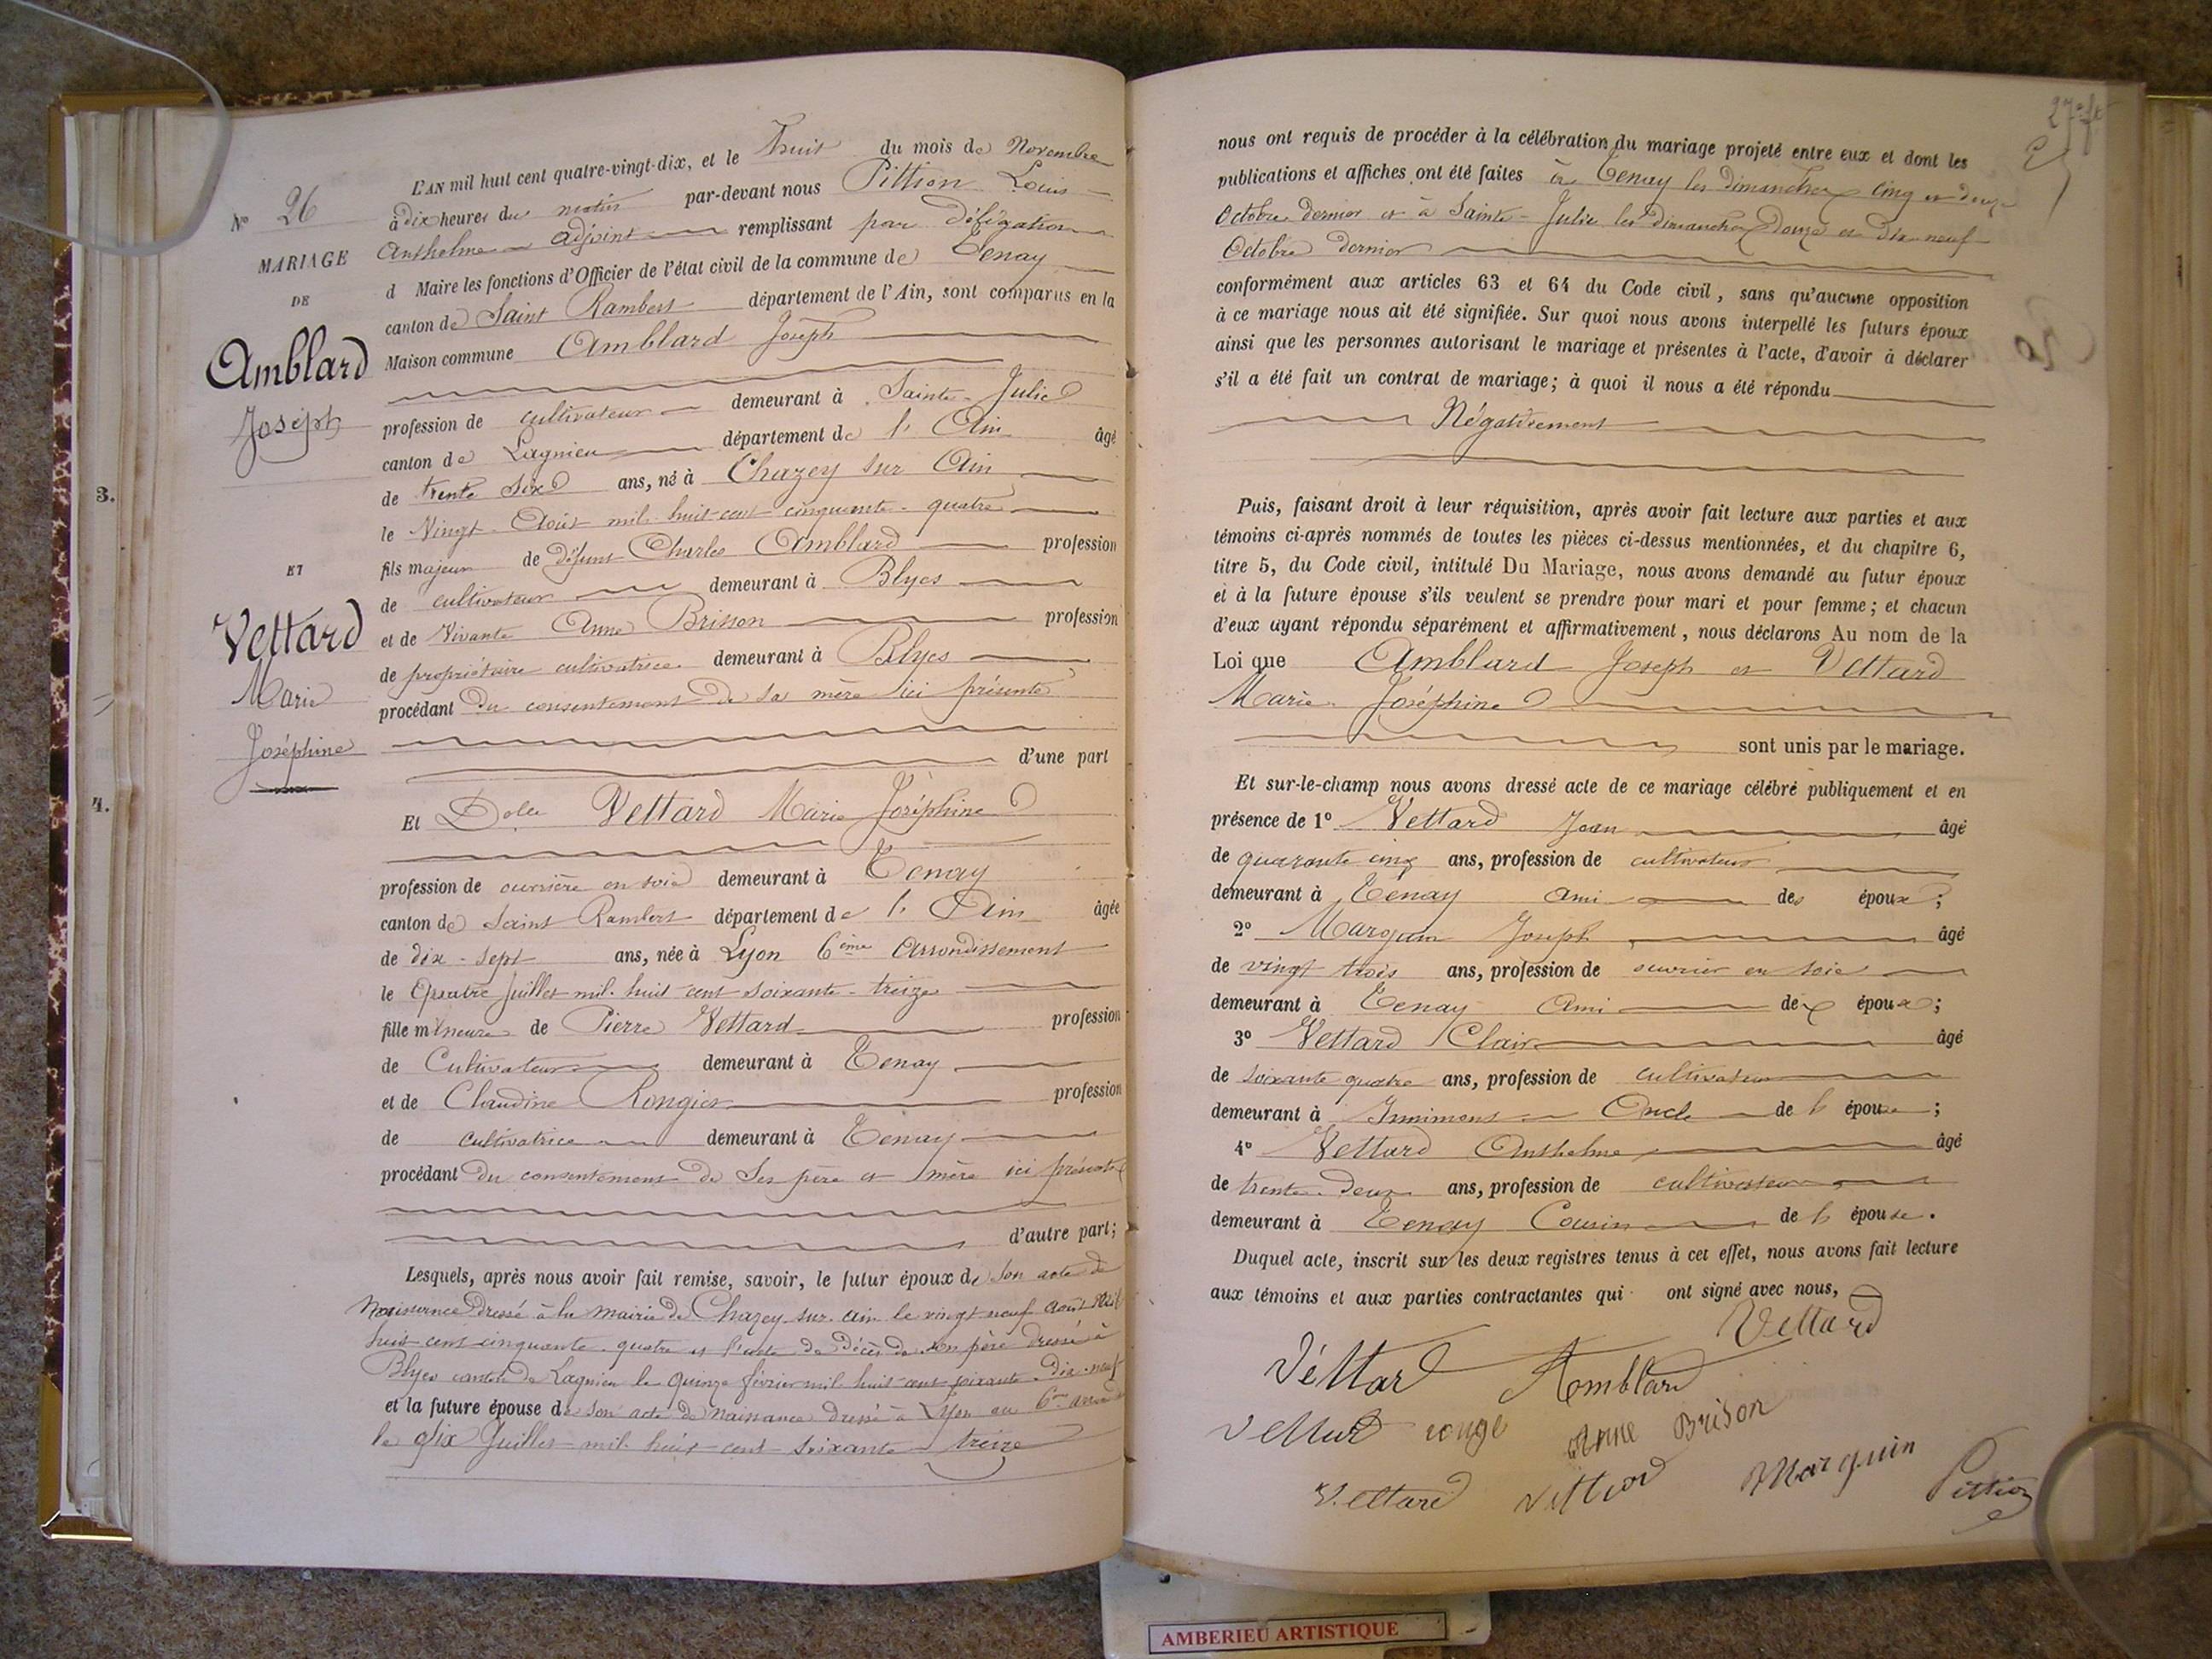 N° 26
MARIAGE
DE
Amblard
Joseph
ET
Vettard
Marie
Joséphine
L'AN mil huit cent quatre-vingt-dix, et le huit du mois de Novembre
à dix heures du matin par-devant nous Pittion Louis
Anthelme adjoint remplissant par délégation
d Maire les fonctions d'Officier de l'état civil de la commune de Tenay
canton de Saint Rambert département de l'Ain, sont comparus en la
Maison commune Amblard Joseph
profession de cultivateur demeurant à Sainte-Julie
canton de Lagnieu département de l'Ain âgé
de trente six ans, né à Chazey sur Ain
le Vingt Août mil huit cent cinquante-quatre
fils majeur de défunt Charles Amblard profession
de cultivateur demeurant à Blyes
et de Vivante Anne Brison profession
de propriétaire cultivatrice demeurant à Blyes
procédant du consentement de sa mère ici présente
d'une part
Et Dolle Vettard Marie Joséphine
profession de ouvrière en soie demeurant à Tenay
canton de Saint Rambert département de l'Ain âgée
de dix-sept ans, née à Lyon 6ème Arrondissement
le Quatre Juillet mil huit cent soixante-treize
fille mineure de Pierre Vettard profession
de Cultivateur demeurant à Tenay
et de Claudine Rongier profession
de cultivatrice demeurant à Tenay
procédant du consentement de ses père et mère ici présents
d'autre part;
Lesquels, après nous avoir fait remise, savoir, le futur époux de son acte de
Naissance dressé à la mairie de Chazey-sur-Ain le vingt neuf août mil
huit cent cinquante-quatre et l'acte de décès de son père dressé à
Blyes canton de Lagnieu le quinze février mil huit cent soixante-dix-neuf
et la future épouse de son acte de Naissance dressé à Lyon au 6me
le dix Juillet mil huit cent soixante-treize
nous ont requis de procéder à la célébration du mariage projeté entre eux et dont les
publications et affiches ont été faites à Tenay les dimanches cinq et douze
Octobre dernier et à Sainte-Julie les dimanches Douze et Dix-neuf
Octobre dernier
conformément aux articles 63 et 64 du Code civil, sans qu'aucune opposition
à ce mariage nous ait été signifiée. Sur quoi nous avons interpellé les futurs époux
ainsi que les personnes autorisant le mariage et présentes à l'acte, d'avoir à déclarer
s'il a été fait un contrat de mariage; à quoi il nous a été répondu
Négativement
Puis, faisant droit à leur réquisition, après avoir fait lecture aux parties et aux
témoins ci-après nommés de toutes les pièces ci-dessus mentionnées, et du chapitre 6,
titre 5, du Code civil, intitulé Du Mariage, nous avons demandé au futur époux
et à la future épouse s'ils veulent se prendre pour mari et pour femme; et chacun
d'eux ayant répondu séparément et affirmativement, nous déclarons Au nom de la
Loi que Amblard Joseph et Vettard
Marie Joséphine
sont unis par le mariage.
Et sur-le-champ nous avons dressé acte de ce mariage célébré publiquement et en
présence de 1° Vettard Jean âgé
de quarante cinq ans, profession de cultivateur
demeurant à Tenay ami des époux;
2° Marquin Joseph âgé
de vingt trois ans, profession de ouvrier en soie
demeurant à Tenay Ami des époux;
3° Vettard Clair âgé
de soixante quatre ans, profession de cultivateur
demeurant à Innimont Oncle de l'épouse;
4° Vettard Anthelme âgé
de trente-deux ans, profession de cultivateur
demeurant à Tenay Cousin de l'épouse.
Duquel acte, inscrit sur les deux registres tenus à cet effet, nous avons fait lecture
aux témoins et aux parties contractantes qui ont signé avec nous,
Véttard Amblard Vettard
Vettard Anne Brison
Vettard Vettard Marquin Pittion
3.
4.
AMBERIEU ARTISTIQUE